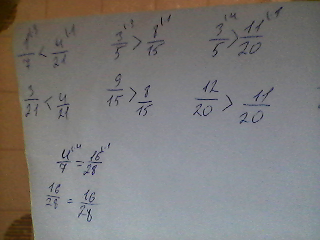 1/7 < 4/21   3/5 > 8/15   3/5 > 11/20
3/21 < 4/21   9/15 > 8/15   12/20 > 11/20
4/7 = 16/28
16/28 = 16/28